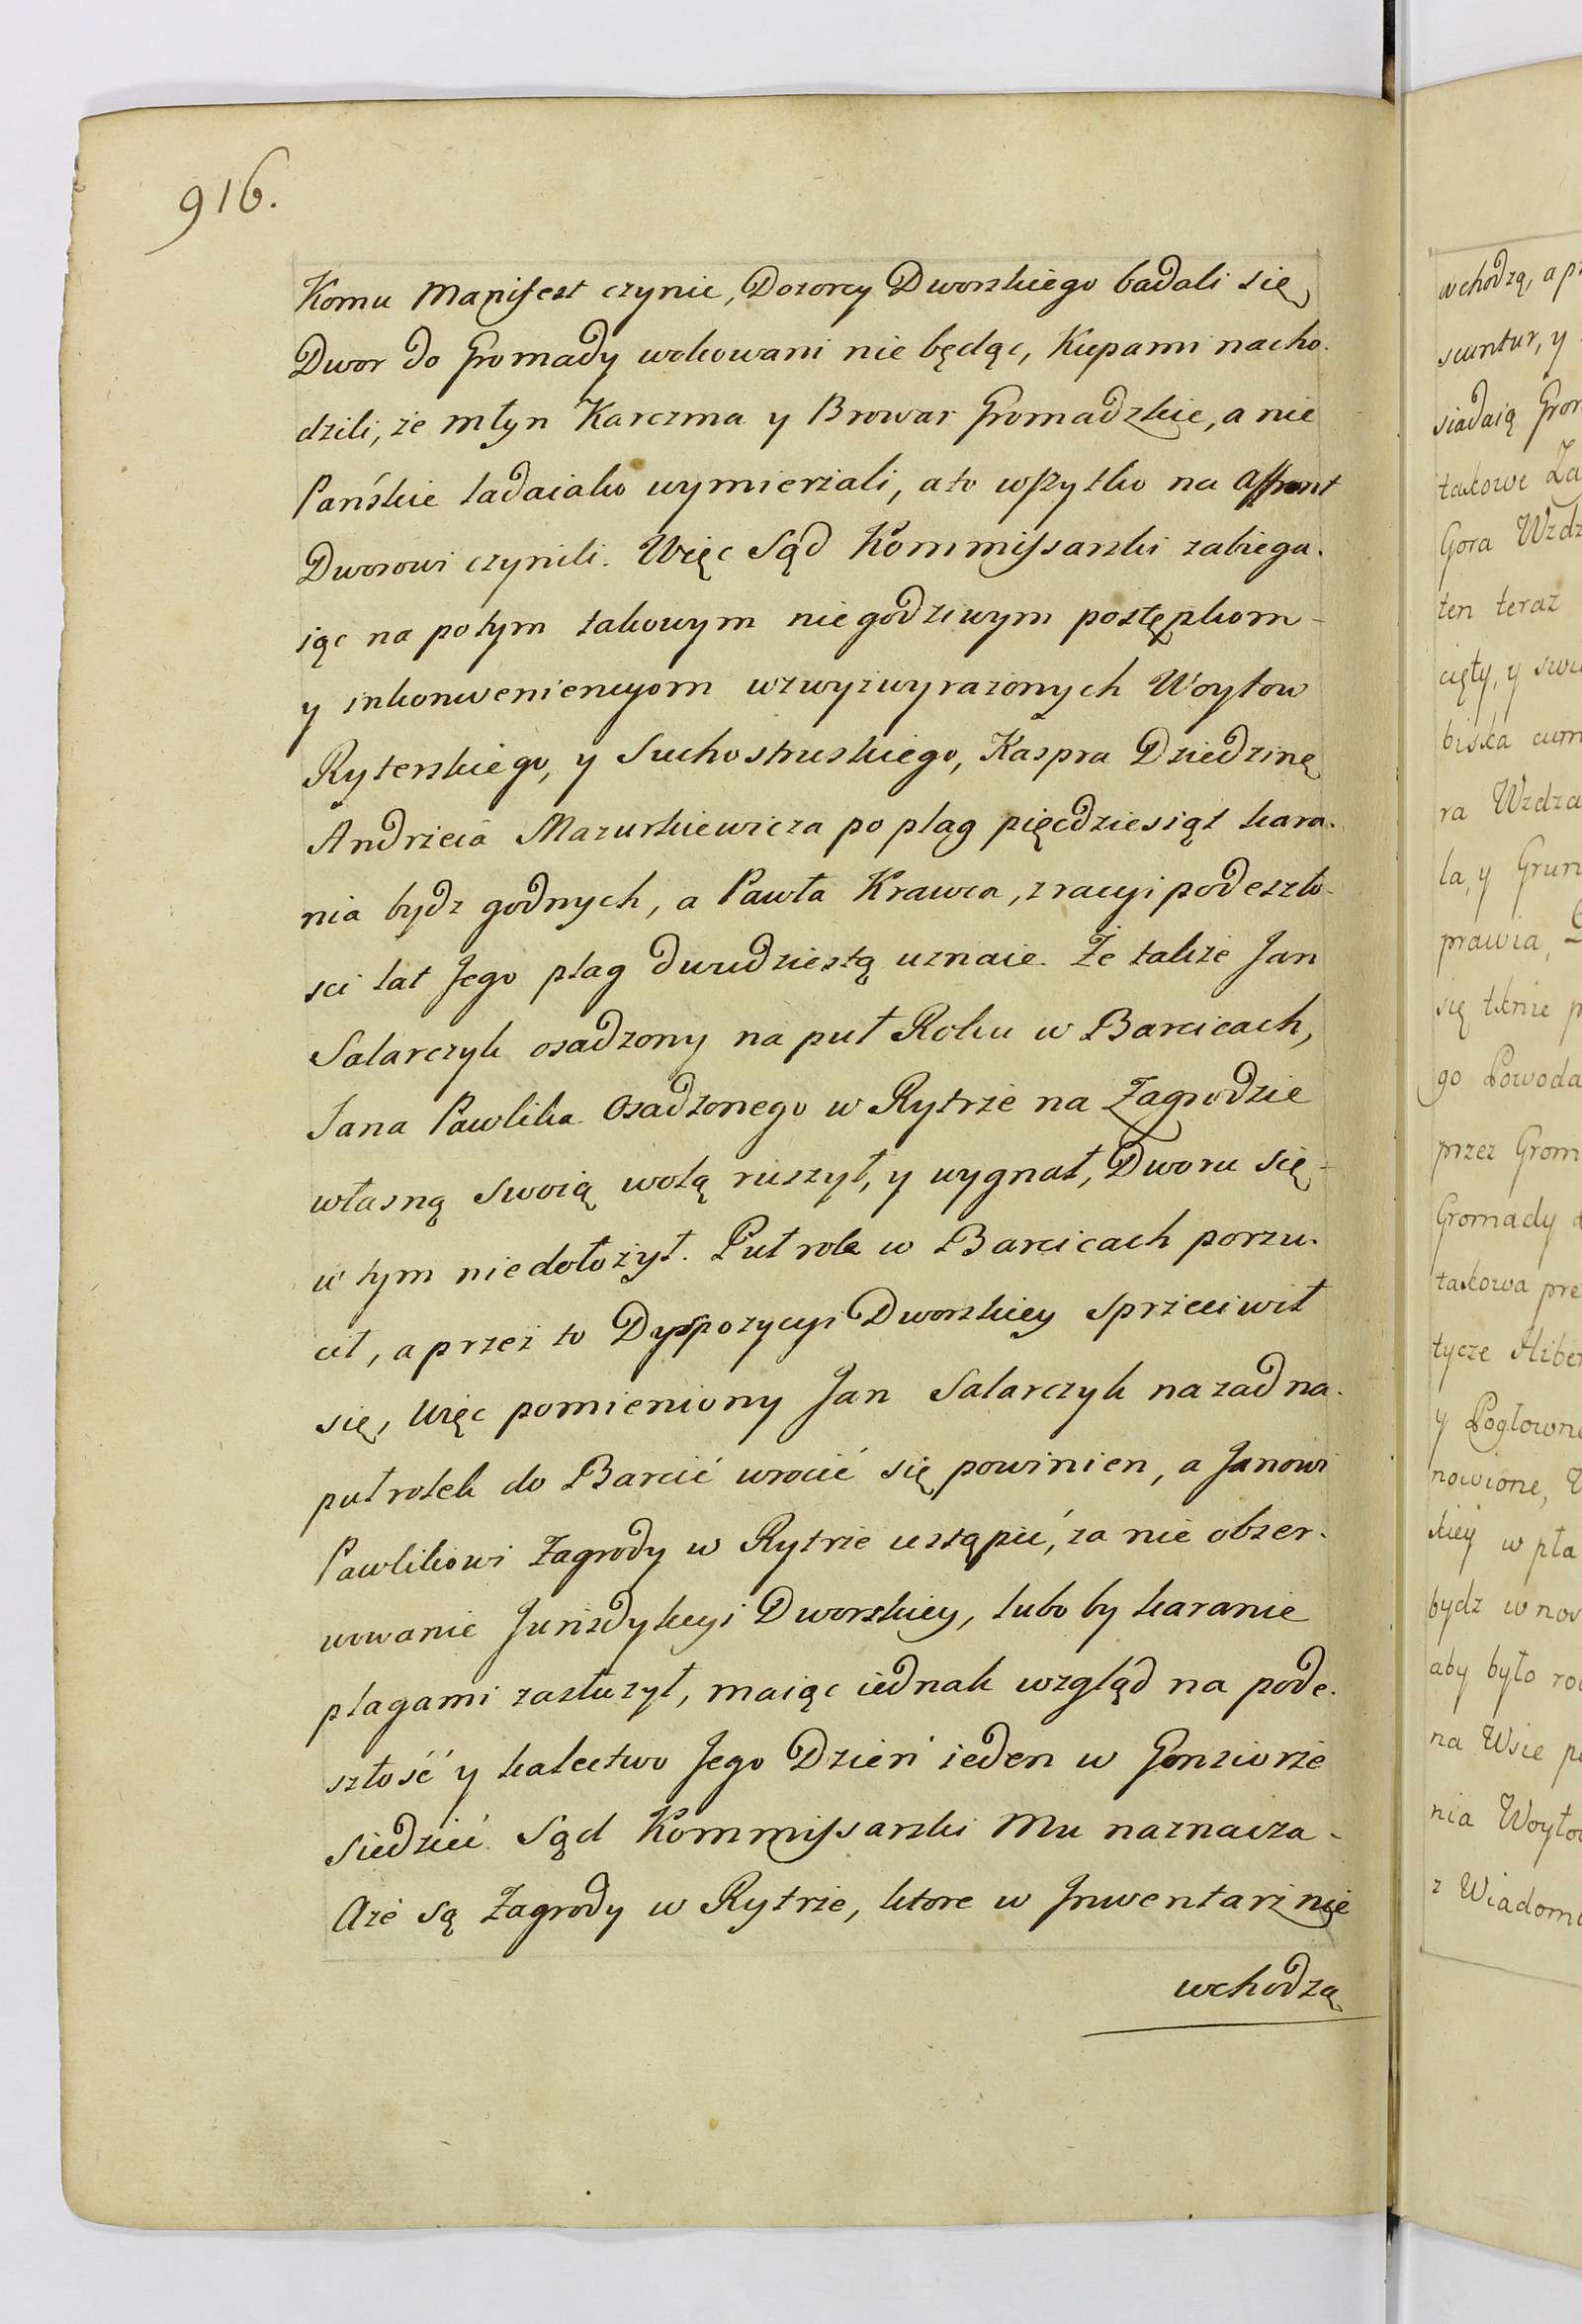 916.
Komu Manifest czynic, Dozorcy Dworskiego badali się
Dwor do Gromady wokowani nie będąc, Kupami nacho-
dzili, że młyn Karczma y Browar Gromadzkie, a nie
Pańskie ladaiako wymierzali, a to wszytko na affront
Dworowi czynili. Więc Sąd Kommissarski zabiega-
iąc na potym takowym niegodziwym postępkom -
y inkonweniencyom wzwyzwyrazonych Woytow
Ryterskiego, y Suchostruskiego, Kaspra Dziedzinę
Andrzeia Mazurkiewicza po plag pięcdziesiąt kara-
nia bydz godnych, a Pawła Krawca, z racyi podeszło-
sci lat Jego plag dwudziestą uznaie. Że także Jan
Salarczyk osadzony na puł Roku w Barcicach,
Jana Pawlika Osadzonego w Rytrze na Zagrodzie
własną swoią wolą ruszył, y wygnał, Dworu się -
w tym niedołożył. Puł role w Barcicach porzu-
cił, a przez to Dyspozycyi Dworskiey sprzeciwił
się, Więc pomieniony Jan Salarczyk nazad na
puł rolek do Barcic wrocić się powinien, a Janowi
Pawlikowi Zagrody w Rytrze ustąpić, za nie obser-
wowanie Jurisdykcyi Dworskiey, lubo by karanie
plagami zasłużył, maiąc iednak wzgląd na pode-
szłość y kalectwo Jego Dzień ieden w Gonsiorze
siedzieć Sąd Kommissarski Mu naznacza -
Aże są Zagrody w Rytrze, ktore w Inwentarz nie
wchodzą
wchodzą, a
scuntur, y
siadaią
takowe
Gora
ten teraz
cięty, y
biska cum
ra
la, y
prawia,
się tknie
go Powoda
przez
Gromady
takowa
tycze
y
nowione,
kiey w
bydz
aby było
na Wsie
nia
z